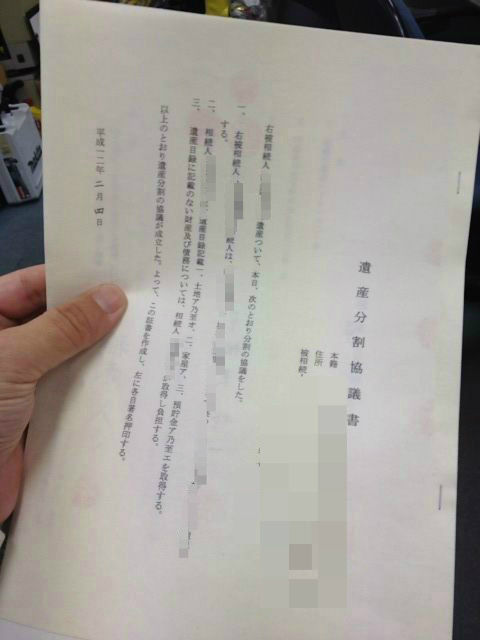 遺産分割協議書
本籍
住所
被相続
右被相続人 遺産ついて、本日、次のとおり分割の協議をした。
一、右被相続人 相続人は、
する。
二、相続人 遺産目録記載一、土地ア乃至オ、二、家屋ア、三、預貯金ア乃至エを取得する。
三、遺産目録に記載のない財産及び債務については、相続人 が取得し負担する。
以上のとおり遺産分割の協議が成立した。よって、この証書を作成し、左に各自署名押印する。
平成一二年二月四日